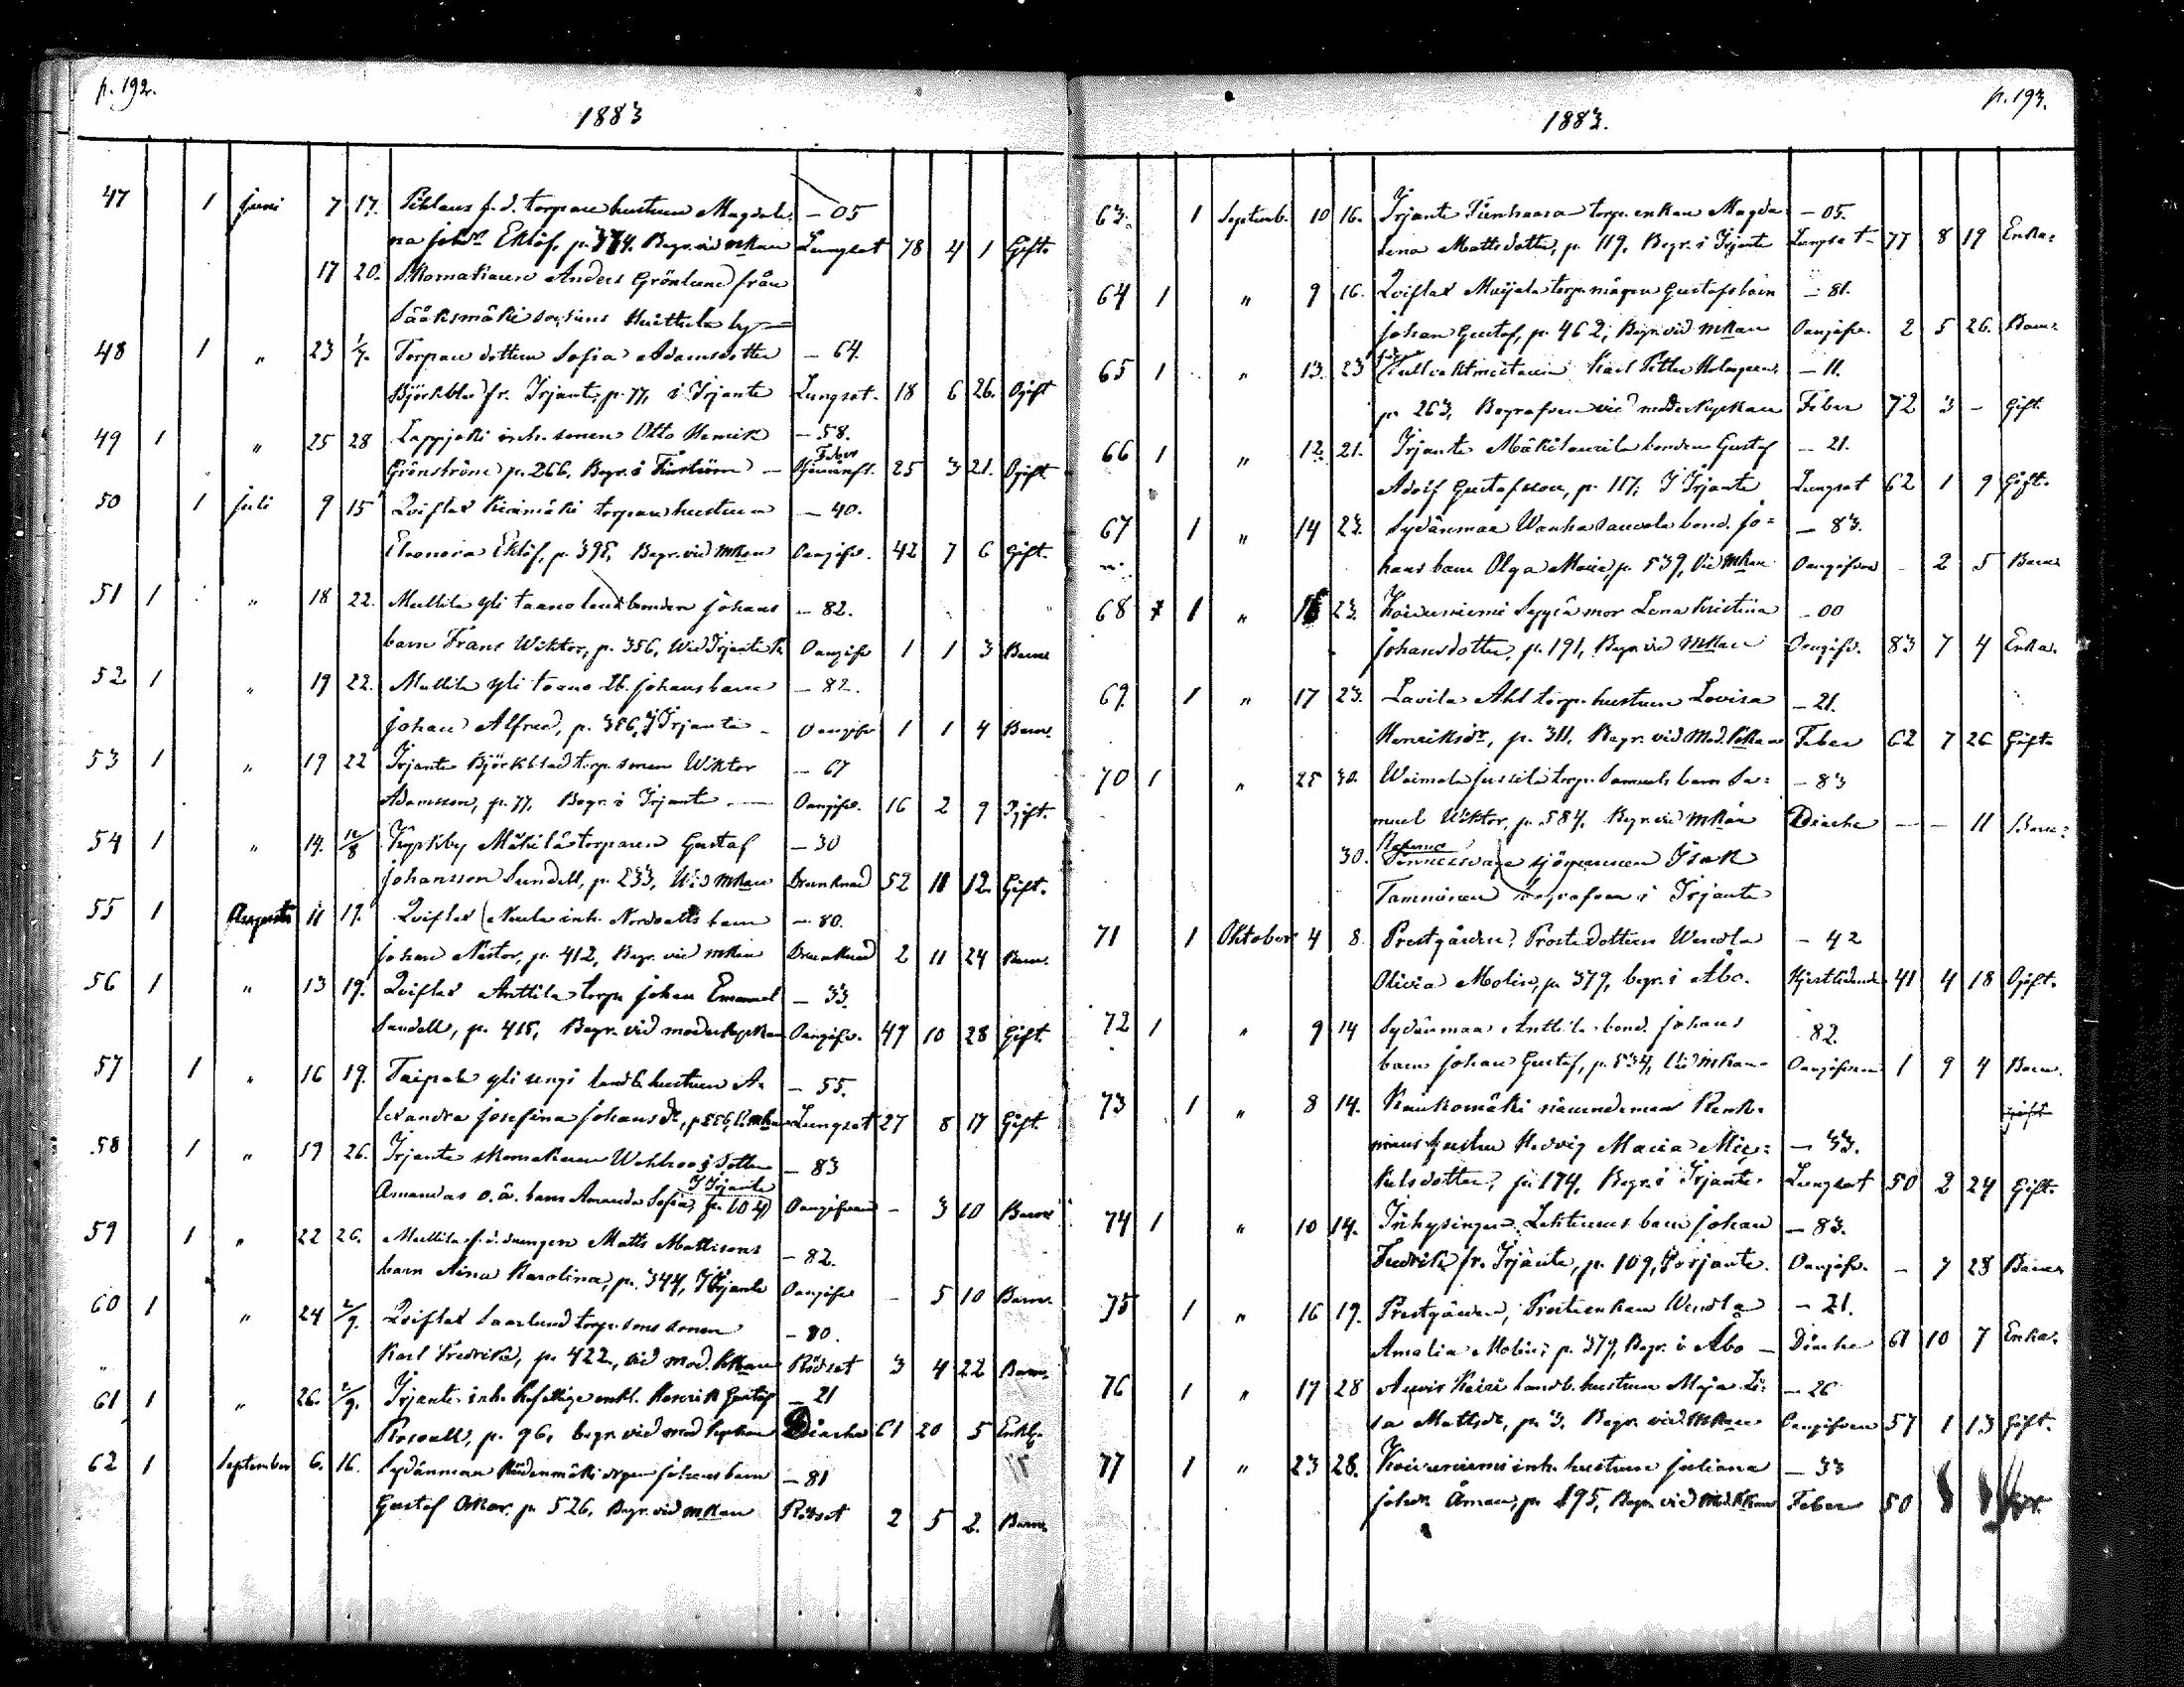 p. 192.
1883
47 1 Juni 7 17. torpare hustrun Magdale- – 05
na Johsdr Eklöf, p. 374. Begr. vid mkan Lungsot 78 4 1 Gift
17 20. Skomakaren Anders Grönlund från
Sääksmäki sockens Huittula by
48 1 „ 23 1/7. Torpare dottern Sofia Adamsdotter – 64.
Björkblad fr. Irjante, p. 77, i Irjante Lungsot. 18 6 26. Ogift
49 1 „ 25 28 Lappjoki inh. sonen Otto Henrik – 58.
Feber
Grönström p. 266. Begr. i 25 3 21. Ogift
50 1 Juli 9 15 Qviflax Kivimäki torpare hustrun – 40.
Eleonora Eklöf, p. 398, Begr. vid mkan Oangifv. 42 7 6 Gift.
51 1 „ 18 22. Mullila yli taano landbonden Johans – 82.
barn Frans Wiktor, p. 356, Wid Irjante k. Oangifv 1 1 3 Barn
52 1 „ 19 22. Mullila yli taano lb. Johans barn – 82.
Johan Alfred, p. 356, I Irjante – Oangifv 1 1 4 Barn.
53 1 „ 19 22 Irjante Björkblad torp. sonen Wiktor – 67
Adamsson, p. 77, Begr. i Irjante Oangifv. 16 2 9 Ogift.
54 1 „ 14. 12/8 Kyrkby Mäkilä torparen Gustaf – 30
Johansson Sundell, p. 233, Wid mkan Drunknad 52 11 12. Gift.
55 1 Augusti 11 19. Qviflax Naula inh. Nordvalls barn – 80.
Johan Nestor, p. 412, Begr. vid mkan Drunknad 2 11 24 Barn.
56 1 „ 13 19. Qviflax Anttila torp. Johan Emanuel – 33.
Sandell, p. 415, Begr. vid moderkyrkan Oangifv. 49 10 28 Gift.
57 1 „ 16 19. Taipale yli sengi landb. hustrun A- – 55.
lexandra Josefina Johansdr, p. 556, Lungsot 27 8 17 Gift.
58 1 „ 19 26. Irjante skomakaren Wahlroos's dotter – 83
I Irjante
Amandas o.ä. barn Amanda Sofia, p. 104) Oangifven – 3 10 Barn
59 1 „ 22 26. Mullila f. d. drängen Matts Mattssons – 82.
barn Aina Karolina, p. 344, I Irjante Oangifv – 5 10 Barn.
60 1 „ 24 2/9. Qviflax Saarlund torp. sons sonen – 80.
Karl Fredrik, p. 422, vid mod. kkan Rödsot 3 4 22 Barn.
61 1 „ 26. 2/9. Irjante inh. enkl. Henrik Gustaf – 21
Rosvall, p. 96, begr. vid mod kyrkan Diarhe 61 20 5 Enkl.
62 1 September 6. 16. Sydänmaa Johans barn – 81
Gustaf Oskar, p. 526, Begr. vid mkan Rödsot 2 5 2. Barn
p. 193.
1883.
63. 1 Septemb. 10 16. Irjante torp. enkan Magda- – 05.
lena Mattsdotter, p. 119, Begr. i Irjante Lungsot 77 8 19 Enka
64 1 „ 9 16. Qviflax Maijala torp. mågen Gustafs barn – 81.
Johan Gustaf, p. 462, Begr. vid mkan Oangifv. 2 5 26. Barn
65 1 „ 13. 23 Karl Petter Holmgren – 11.
p. 263, Begrafven vid moderkyrkan Feber 72 3 – Gift.
66 1 „ 12. 21. Irjante Mäkilaurila bonden Gustaf – 21.
Adolf Gustafsson, p. 117, I Irjante Lungsot 62 1 9 Gift.
67 1 „ 14 23. Sydänmaa Wanha Sauvola bond. Jo- – 83.
hans barn Olga Maria, p. 539, Vid mkan Oangifven – 2 5 Barn
68 1 „ 23. Koivuniemi Seppä mor Lena Kristina – 00
Johansdotter, p. 191, Begr. vid mkan Oangifv. 83 7 4 Enka.
69. 1 „ 17 23. Lavila Ahl torp. hustrun Lovisa – 21.
Henriksdr, p. 311, Begr. vid Mod. kkan Feber 62 7 26 Gift
70 1 „ 25 30. Waimala Jussila torp. Samuels barn Sa- – 83
muel Wiktor, p. 584, Begr. vid mkan Diarhe – – 11 Barn
30. sjömannen Isak
Tamminen begrafven i Irjante
71 1 Oktober 4 8. Prestgården, Prostedottern Wendla – 42
Olivia Molin, p. 379, begr. i Åbo. Hjertlidande 41 4 18 Ogift.
72 1 „ 9 14 Sydänmaa Anttila bond. Johans 82.
barn Johan Gustaf, p. 534, Vid mkan Oangifven 1 9 4 Barn.
73 1 „ 8 14. Kaukomäki nämndeman Renk-
mans hustru Hedvig Maria Mic- – 33.
kelsdotter, p. 174, Begr. i Irjante Lungsot 50 2 24 Gift.
74 1 „ 10 14. Inhysingen Lehtinens barn Johan – 83.
Fredrik fr. Irjante, p. 109, I Irjante. Oangifv. – 7 28 Barn
75 1 „ 16 19. Prestgården, Prostenkan Wendla – 21.
Amalia Molin, p. 379, Begr. i Åbo – Diarhe 61 10 7 Enka.
76 1 „ 17 28 Auvis Keiri landb. hustrun Maja Li- – 26
sa Mattsdr, p. 3. Begr. vid mkan Oangifven 57 1 13 Gift.
77 1 „ 23 28. Koivuniemi inh. hustrun Juliana – 33
Johdr Åman, p. 195, Begr. vid Mod. kkan Feber 50